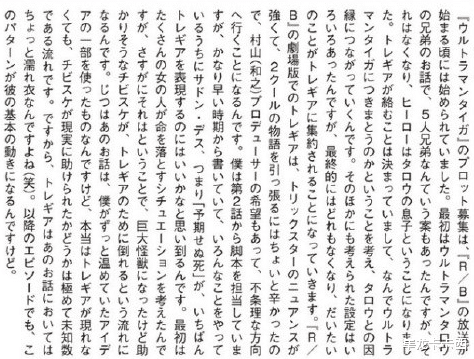 『ウルトラマンタイガ』のプロット募集は、『R/B』の放送が
始まる頃には始められていました。最初はウルトラマンタロウ
の兄弟のお話で、5人兄弟なんていう案もあったんですが、そ
れはなくなり、ヒーローはタロウの息子ということになりまし
た。トレギアが絡むことは決まっていまして、なんでウルトラ
マンタイガにつきまとうのかということを考え、タロウとの因
縁につながっていくんです。そのほかにも考えられた設定はい
ろいろあったんですが、最終的にはどれもなくなり、だいたい
のことがトレギアに集約されることになっていきます。『R/
B』の劇場版でのトレギアは、トリックスターのニュアンスが
強くて、2クールの物語を引っ張るにはちょいと辛かったの
で、村山(和之)プロデューサーの希望もあって、不条理な方向
へ行くことになるんです。僕は第2話から脚本を担当していま
すが、かなり早い時期から書いていて、いろんなことをやって
いるうちにサドン・デス、つまり「予期せぬ死」が、いちばん
トレギアを表現するのにはいいかなと思い到るんです。最初は
たくさんの女の人が命を落とすシチュエーションを考えたんで
すが、さすがにそれはということで、巨大怪獣になったけど助
かりそうなチビスケが、トレギアのために倒れるという流れに
なるんです。じつはあのお話は、僕がずっと温めていたアイデ
アの一部を使ったものなんですけど、本当はトレギアが現れな
くても、チビスケが現実に助けられたかどうかは極めて未知数
である流れです。ですから、トレギアはあのお話においては
ちょっと濡れ衣なんですよね(笑)。以降のエピソードでも、こ
のパターンが彼の基本の動きになるんですけど。